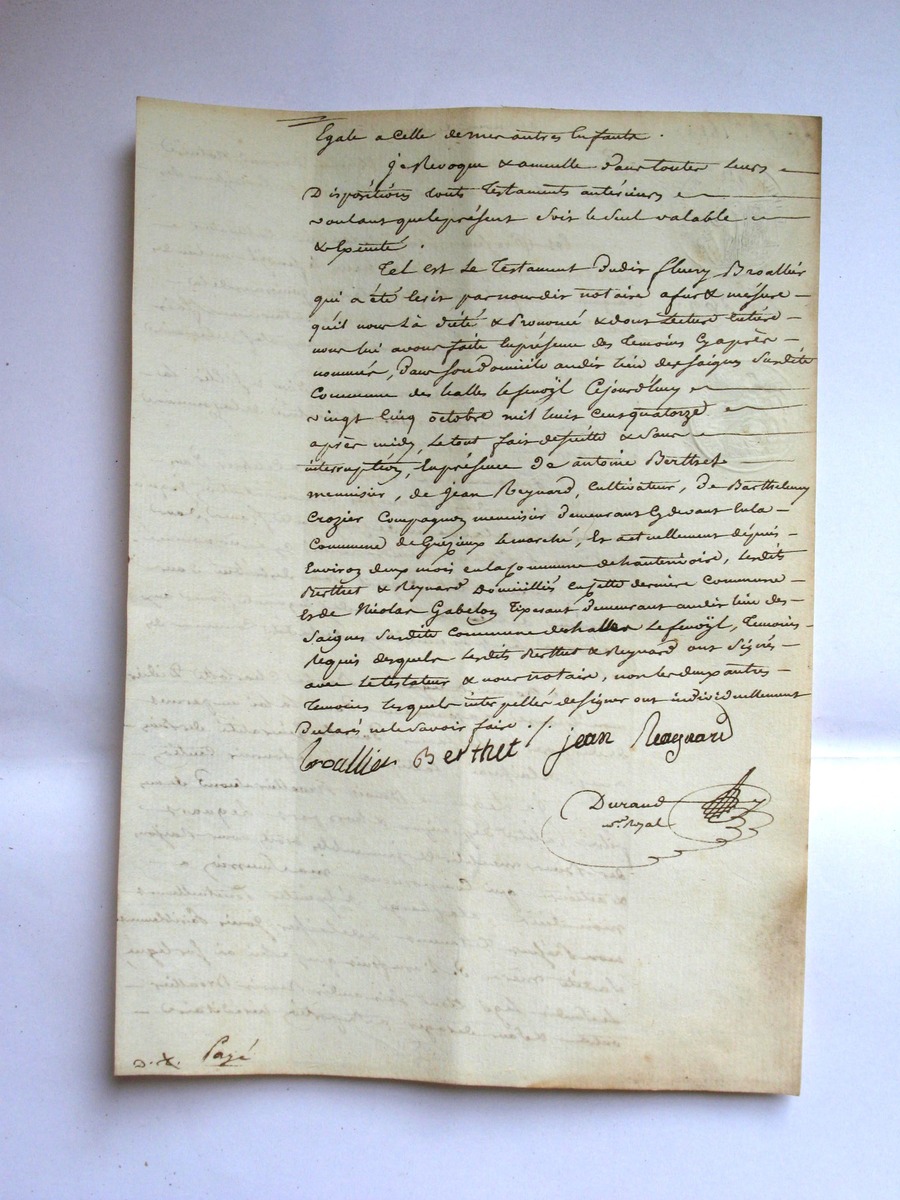 Egale a celle de mes autres Enfants.
Je Revoque & annulle dans toutes leurs
Dispositions touts Testaments antérieurs
voulant que le présent soit le seul valable
& Exécuté.
Tel est le Testament dudit fleury Broallier
qui a été écrit par nous dit notaire a fur & mésure
qu'il nous l'à dicté & Prononcé & dont Lecture Entière
nous lui avons faite En présence des Témoins Cy après
nommés, dans son Domicile audit lieu des saignes susditte
Commune des halles le fenoÿl Cejourd'huy
vingt Cinq octobre mil huit Cent quatorze
après midy, Le tout fait de suitte & sans
interruption, En présence de antoine Berthet
menuisier, de jean Reynard, Cultivateur, De Barthelemy
Crozier Compagnon menuisier demeurant Cy devant En la
Commune de Grézieux Le marché, Et actuellement dépuis
Environ deux mois en la Commune de hauterivoire, Lesdits
Berthet & Reynard Domiciliés en cette dernière Commune
Et de Nicolas Gabelon Tixerant demeurant audit lieu des
Saignes Susdite Commune des halles Le fenoÿl, Témoins
Requis desquels Lesdits Berthet & Reynard ont Signés
avec Le testateur & nous notaire, non les deux autres
Témoins Lesquels interpellés de signer ont individuellement
Déclarés ne le Savoir faire ./.
Broallier Berthet jean Reagnard
Durand
n.re Royal
D. N. Payé